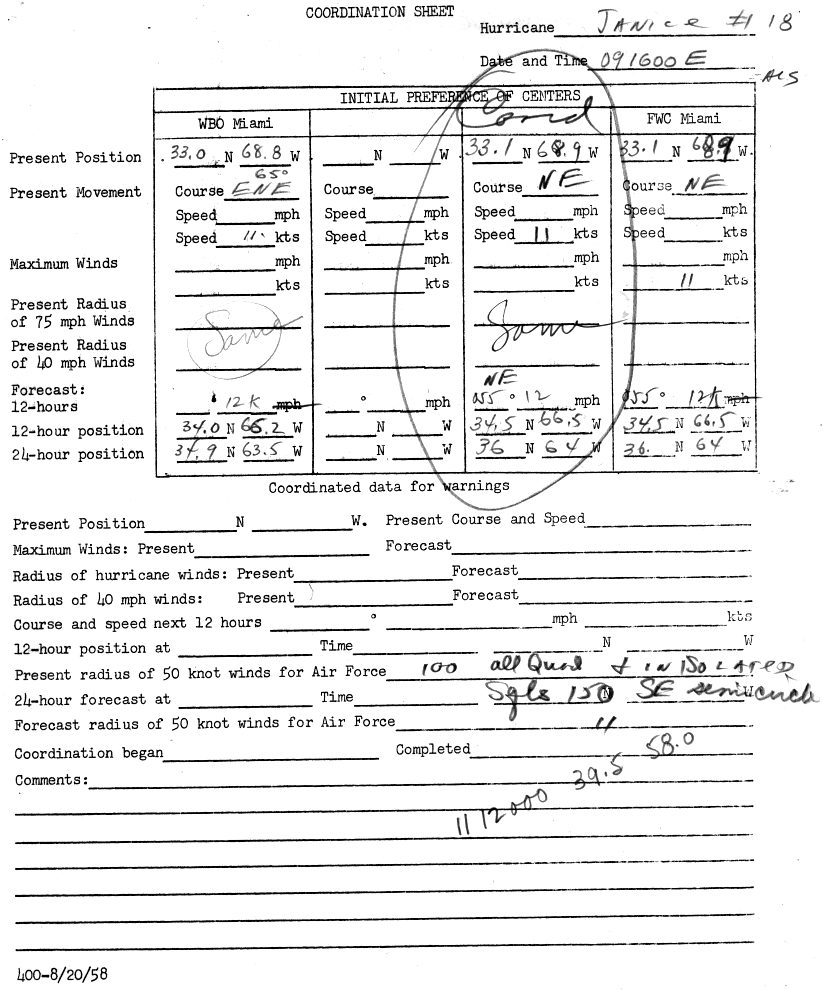 COORDINATION SHEET
Hurricane JANICE #18
Date and Time 091600 E
ALS
INITIAL PREFERENCE OF CENTERS
WBO Miami Coord FWC Miami
Present Position 33.0 N 68.8 W N W 33.1 N 68.9 W 33.1 N 68.9 W
65°
Present Movement Course ENE Course Course NE Course NE
Speed mph Speed mph Speed mph Speed mph
Speed 11 kts Speed kts Speed 11 kts Speed kts
Maximum Winds mph mph mph mph
kts kts kts 11 kts
Present Radius
of 75 mph Winds Same Same
Present Radius
of 40 mph Winds
NE
Forecast:
12-hours 12K mph ° mph 055° 12 mph 055° 12K mph
12-hour position 34.0 N 66.2 W N W 34.5 N 66.5 W 34.5 N 66.5 W
24-hour position 34.9 N 63.5 W N W 36 N 64 W 36. N 64 W
Coordinated data for warnings
Present Position N W. Present Course and Speed
Maximum Winds: Present Forecast
Radius of hurricane winds: Present Forecast
Radius of 40 mph winds: Present Forecast
Course and speed next 12 hours ° mph kts
12-hour position at Time N W
Present radius of 50 knot winds for Air Force 100 all Quad + in ISOLATED
24-hour forecast at Time Sqls 150 N SE semicircle W
Forecast radius of 50 knot winds for Air Force "
Coordination began Completed
Comments:
111200 39.5 58.0
400-8/20/58